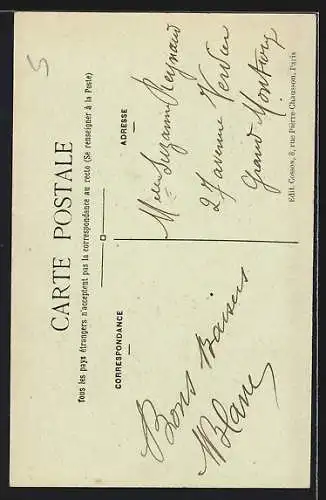 5
CARTE POSTALE
Tous les pays étrangers n'acceptent pas la correspondance au recto (Se renseigner à la Poste)
CORRESPONDANCE
Bons Baisers
MBlanc
ADRESSE
Melle Suzanne Reynaud
27 avenue Verdier
Grand Montrouge
Edit. Cosson, 8, rue Pierre-Chausson, Paris